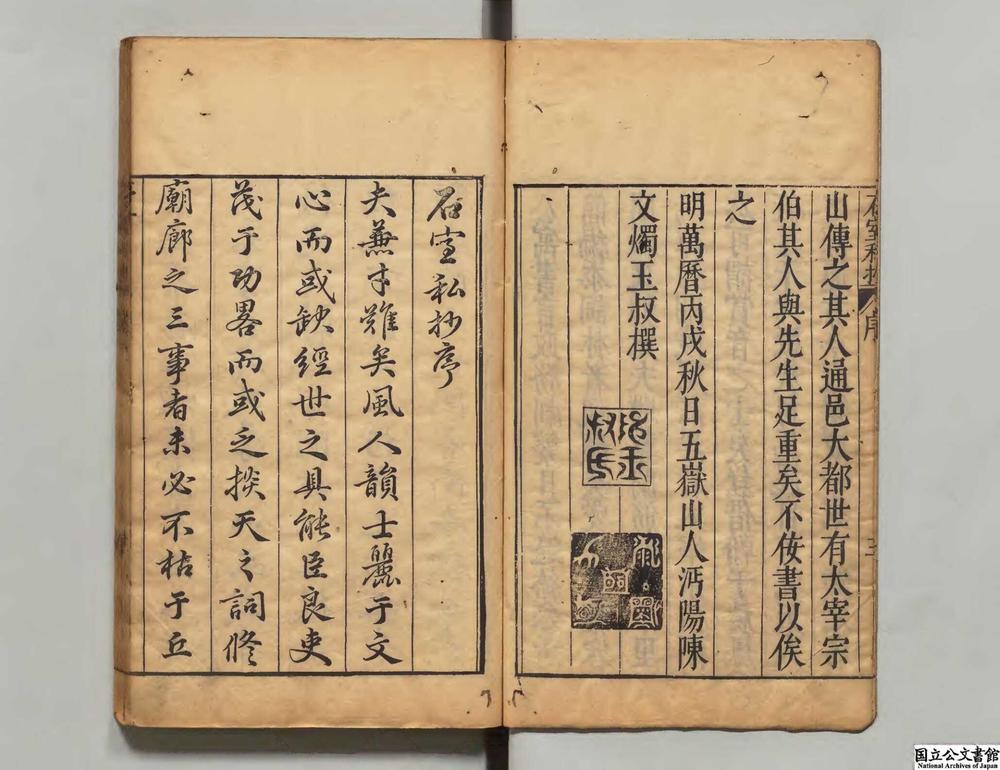 石室私抄 序
山傳之其人通邑大都世有太宰宗
伯其人與先生足重矣不佞書以俟
之
明萬曆丙戌秋日五嶽山人沔陽陳
文燭玉叔撰
陳玉叔氏
石室私抄序
夫兼才難矣風人韻士麗于文
心而或缺經世之具能臣良吏
茂于功畧而或乏掞天之詞脩
廟廊之三事者未必不枯于丘
国立公文書館
National Archives of Japan